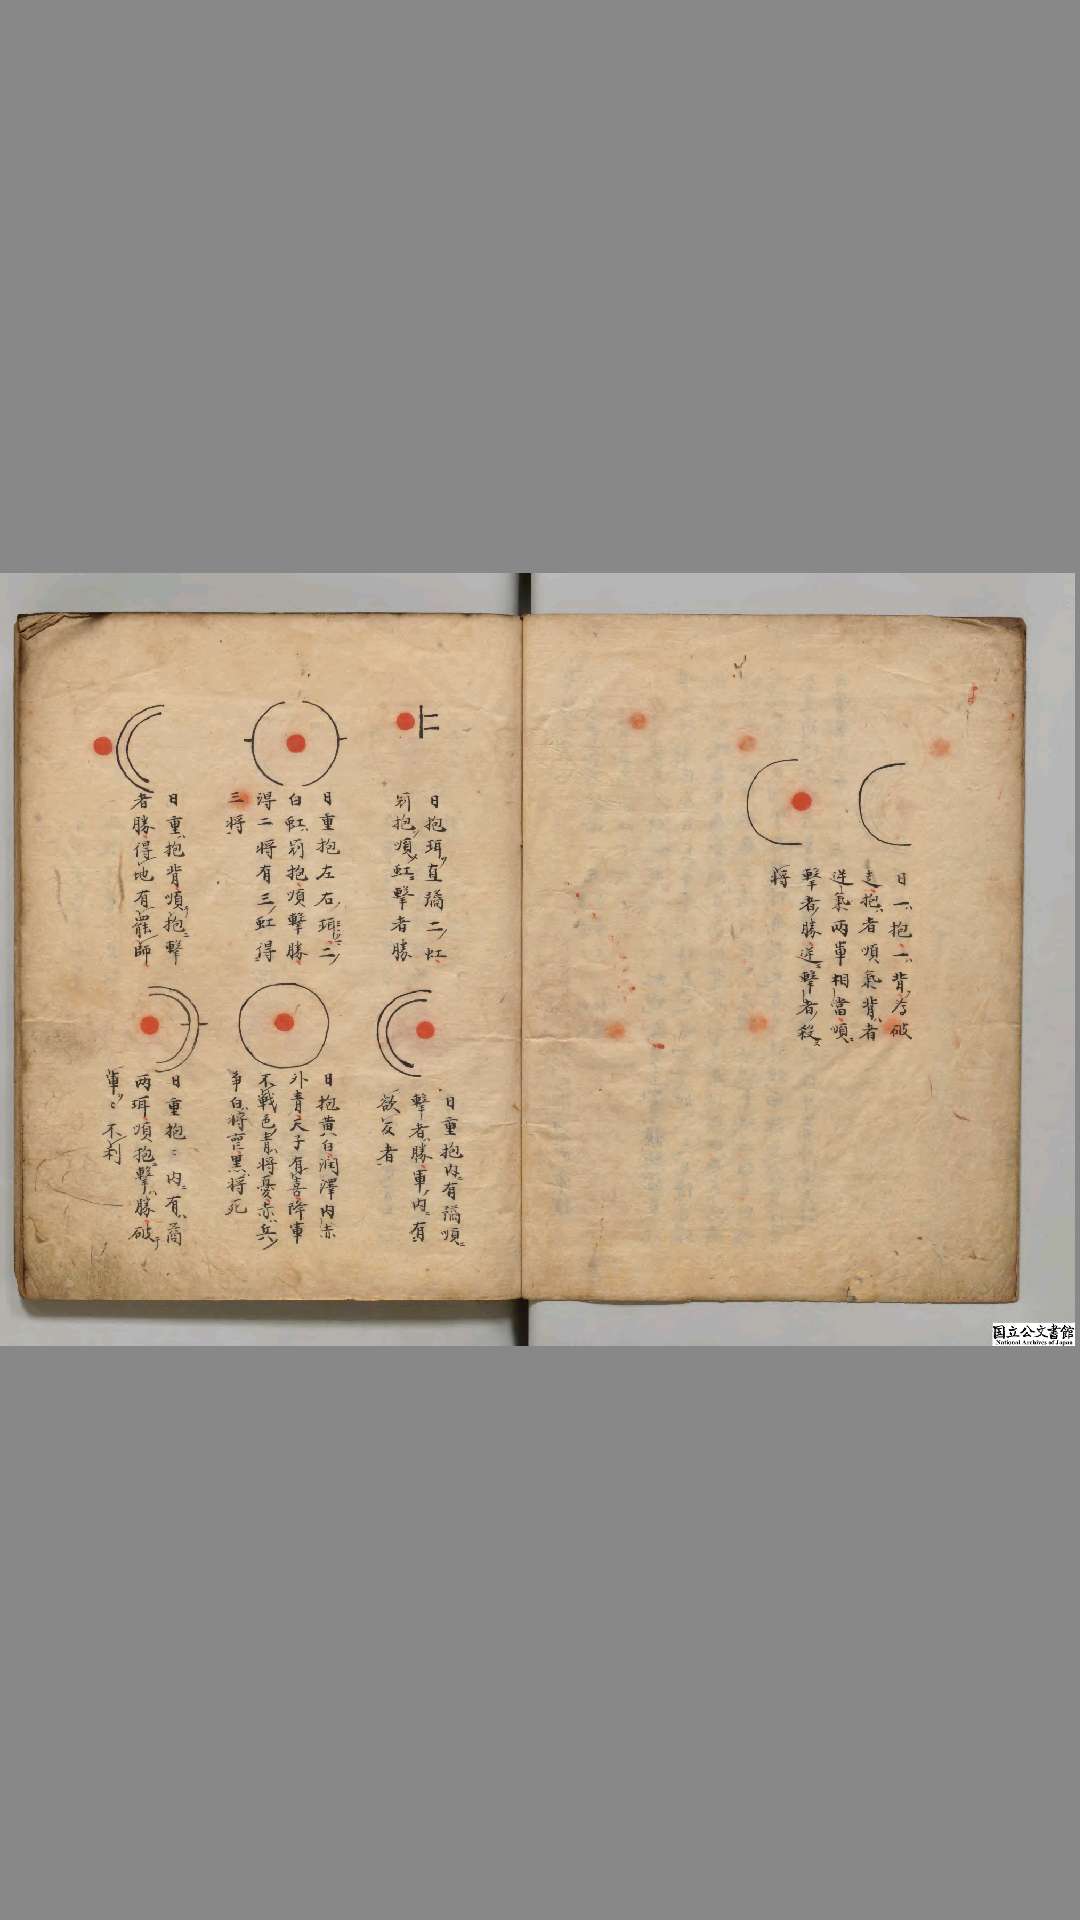 日一抱一背為破
走抱者順氣背者
逆氣兩軍相當順
擊者勝逆擊者殺
將
日抱珥直璚二虹
罰抱順虹擊者勝
日重抱内有璚順
擊者勝軍内有
欲反者
日重抱左右珥二
白虹罰抱順擊勝
得二將有三虹得
三將
日抱黄白潤澤内赤
外青天子有喜降軍
不戰色青將憂赤兵
爭白將喪黒將死
日重抱背順抱擊
者勝得地有罷師
日重抱〻内有璚
兩珥順抱擊勝破
軍〻不利
国立公文書館
National Archives of Japan